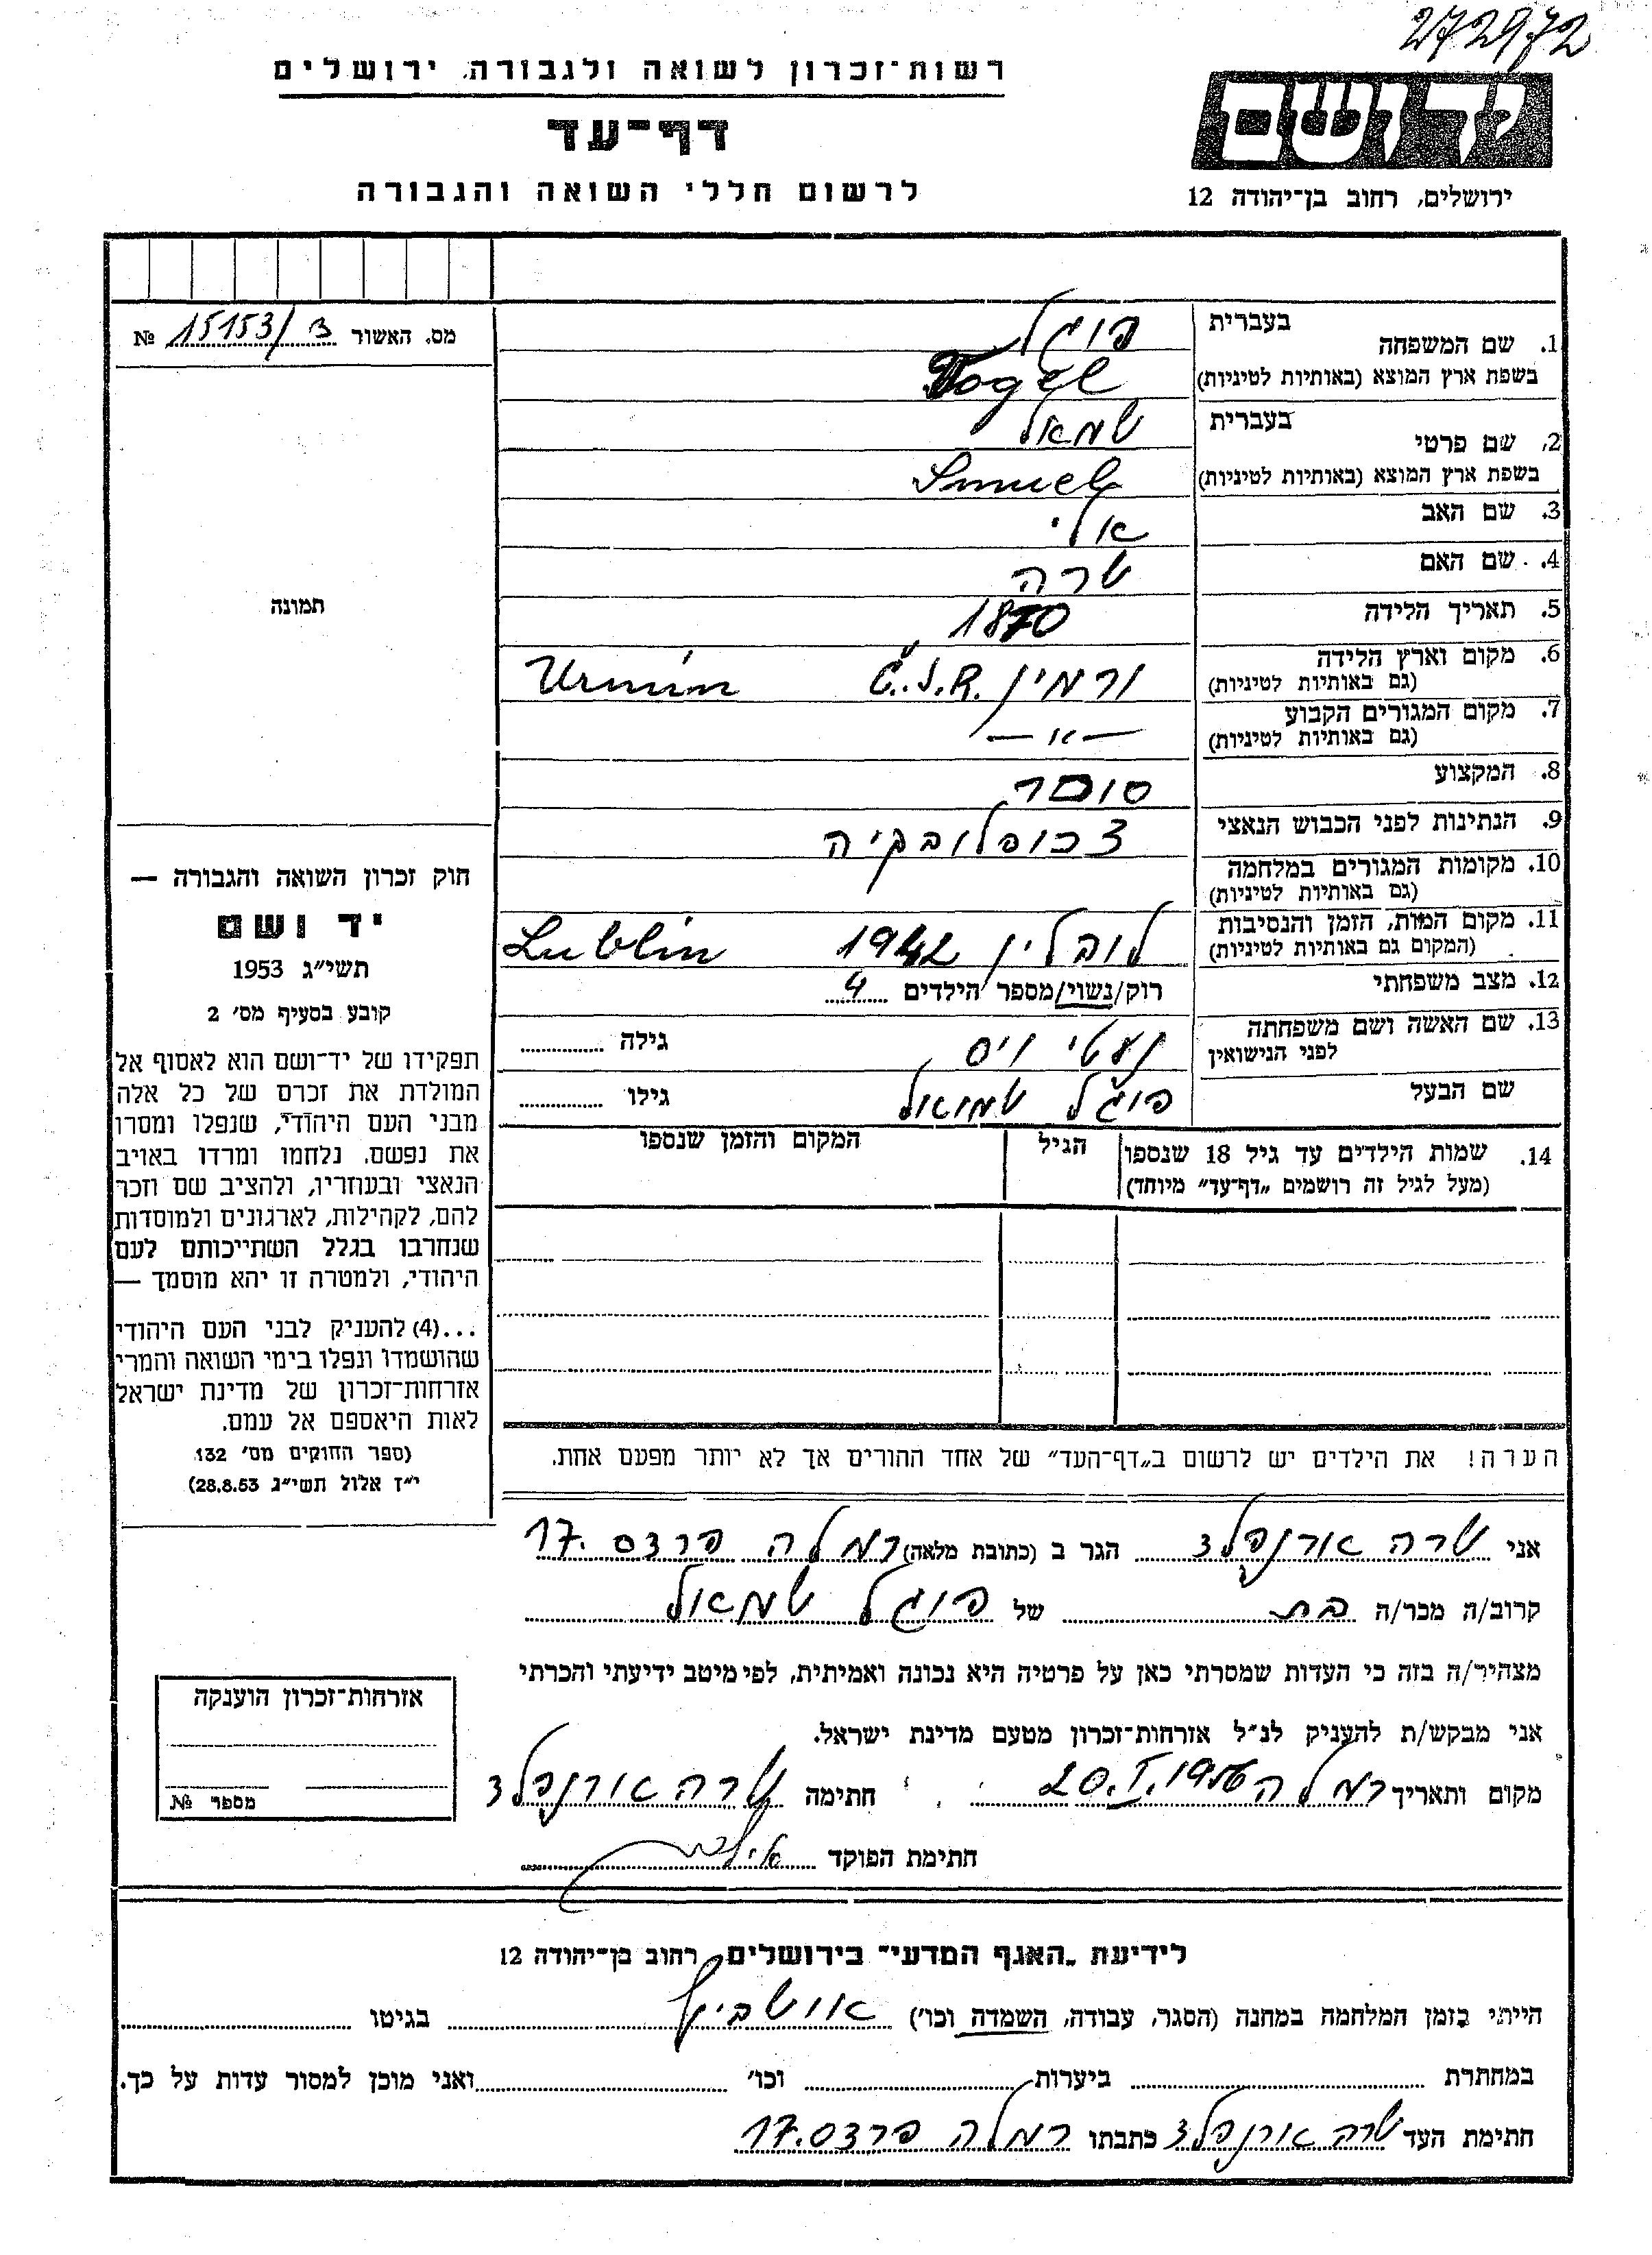 272972
רשות־זכרון לשואה ולגבורה, ירושלים
דף־עד
לרשום חללי השואה והגבורה
יד ושם
ירושלים, רחוב בן־יהודה 12
מס. האשור 15153/3 №
תמונה
חוק זכרון השואה והגבורה —
יד ושם
תשי״ג 1953
קובע בסעיף מס׳ 2
תפקידו של יד־ושם הוא לאסוף אל
המולדת את זכרם של כל אלה
מבני העם היהודי, שנפלו ומסרו
את נפשם, נלחמו ומרדו באויב
הנאצי ובעוזריו, ולהציב שם וזכר
להם, לקהילות, לארגונים ולמוסדות
שנחרבו בגלל השתייכותם לעם
היהודי, ולמטרה זו יהא מוסמך —
...(4) להעניק לבני העם היהודי
שהושמדו ונפלו בימי השואה והמרי
אזרחות־זכרון של מדינת ישראל
לאות היאספם אל עמם.
(ספר החוקים מס׳ 132
י״ז אלול תשי״ג 28.8.53)
1. שם המשפחה בעברית פוגל
בשפת ארץ המוצא (באותיות לטיניות) Vogel
2. שם פרטי בעברית שמאל
בשפת ארץ המוצא (באותיות לטיניות) Smuel
3. שם האב אלי
4. שם האם שרה
5. תאריך הלידה 1870
6. מקום וארץ הלידה (גם באותיות לטיניות) ורמין Č.S.R. Urmín
7. מקום המגורים הקבוע (גם באותיות לטיניות) — " —
8. המקצוע סוחר
9. הנתינות לפני הכבוש הנאצי צכוסלובקיה
10. מקומות המגורים במלחמה (גם באותיות לטיניות)
11. מקום המות, הזמן והנסיבות (המקום גם באותיות לטיניות) לובלין 1942 Lublin
12. מצב משפחתי רוק/נשוי/מספר הילדים 4
13. שם האשה ושם משפחתה לפני הנישואין נעטי ויס גילה
שם הבעל פוגל שמואל גילו
14. שמות הילדים עד גיל 18 שנספו הגיל המקום והזמן שנספו
(מעל לגיל זה רושמים „דף־עד״ מיוחד)
הערה! את הילדים יש לרשום ב„דף־העד״ של אחד ההורים אך לא יותר מפעם אחת.
אני שרה ארנפלד הגר ב (כתובת מלאה) רמלה פרדס 17.
קרוב/ה מכר/ה בת של פוגל שמאול
מצהיר/ה בזה כי העדות שמסרתי כאן על פרטיה היא נכונה ואמיתית, לפי מיטב ידיעתי והכרתי
אני מבקש/ת להעניק לנ״ל אזרחות־זכרון מטעם מדינת ישראל.
מקום ותאריך רמלה 20.I.1956 חתימה שרה ארנפלד
חתימת הפוקד
אזרחות־זכרון הוענקה
מספר №
לידיעת „האגף המדעי״ בירושלים, רחוב בן־יהודה 12
הייתי בזמן המלחמה במחנה (הסגר, עבודה, השמדה וכו׳) אושביץ בגיטו
במחתרת ביערות וכו׳ ואני מוכן למסור עדות על כך.
חתימת העד שרה ארנפלד כתבתו רמלה פרדס 17.